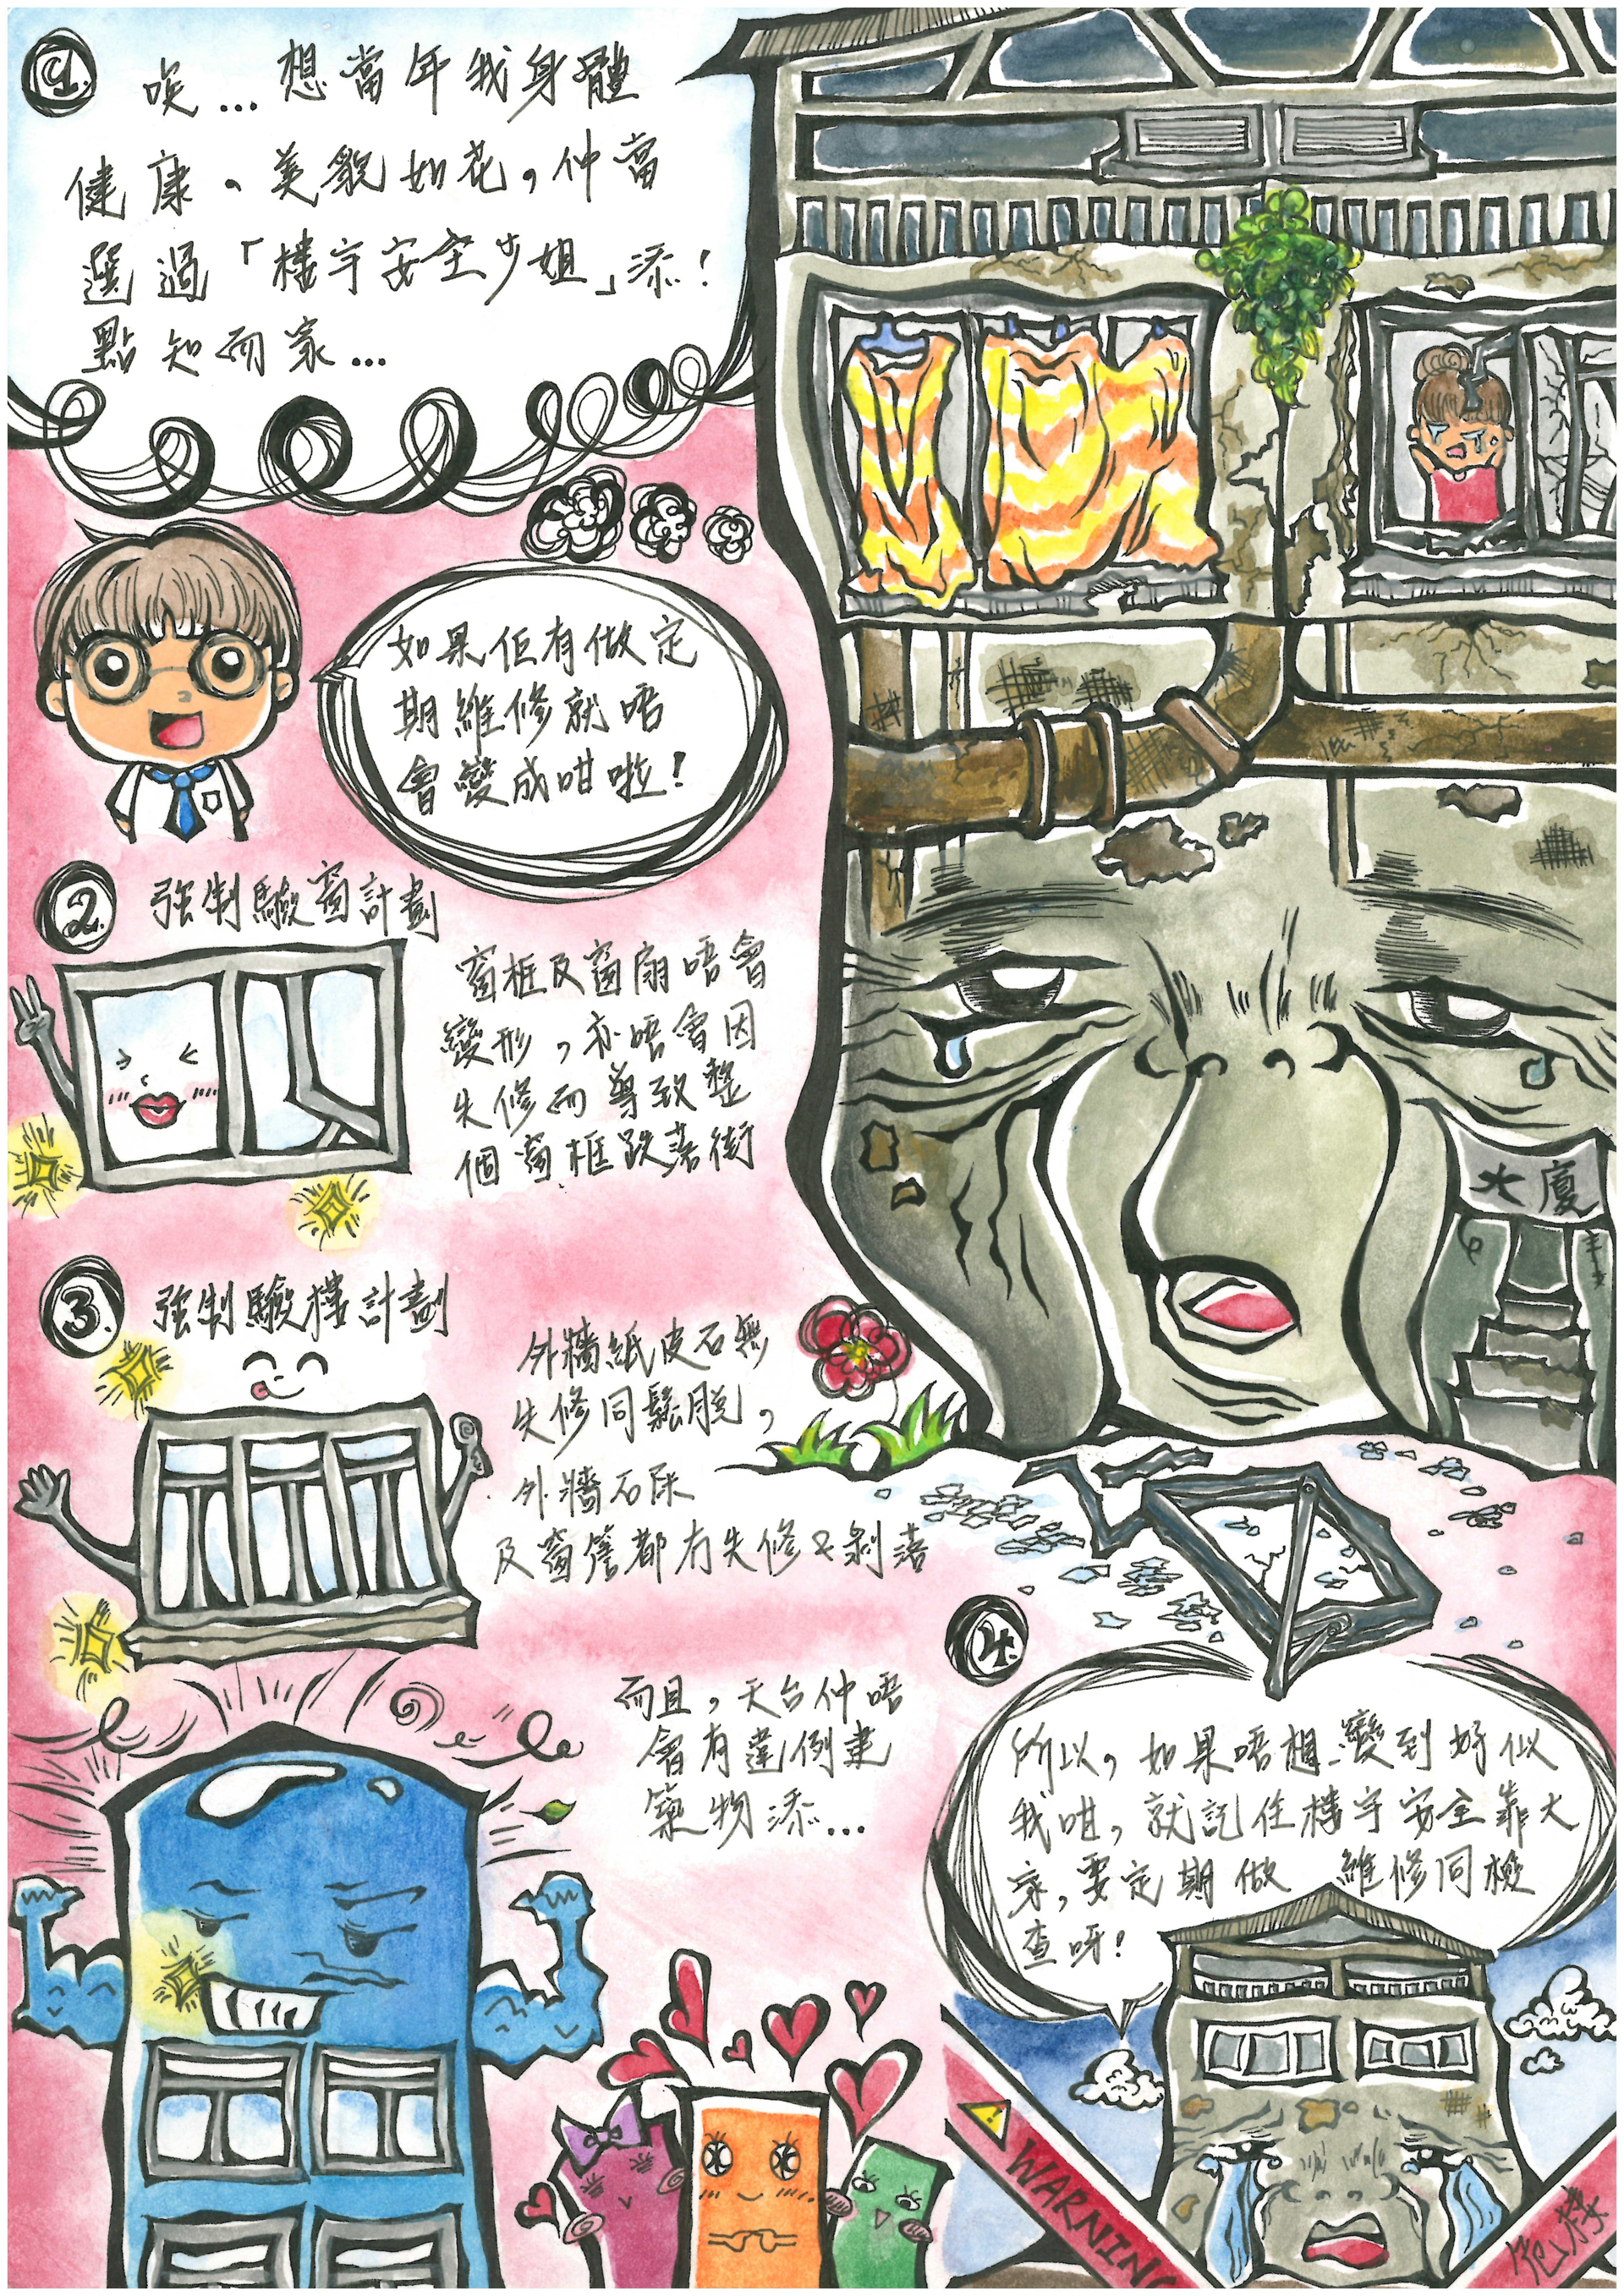 1.
唉...想當年我身體
健康、美貌如花，仲當
選過「樓宇安全少姐」添！
點知而家...
如果佢有做定
期維修就唔
會變成咁啦！
2.
強制驗窗計劃
窗框及窗扇唔會
變形，亦唔會因
失修而導致整
個窗框跌落街
3.
強制驗樓計劃
外牆紙皮石無
失修同鬆脫，
外牆石屎
及窗簷都冇失修&剝落
而且，天台仲唔
會有違例建
築物添...
大廈
4.
所以，如果唔想變到好似
我咁，就記住樓宇安全靠大
家，要定期做 維修同檢
查呀！
WARNING
危樓